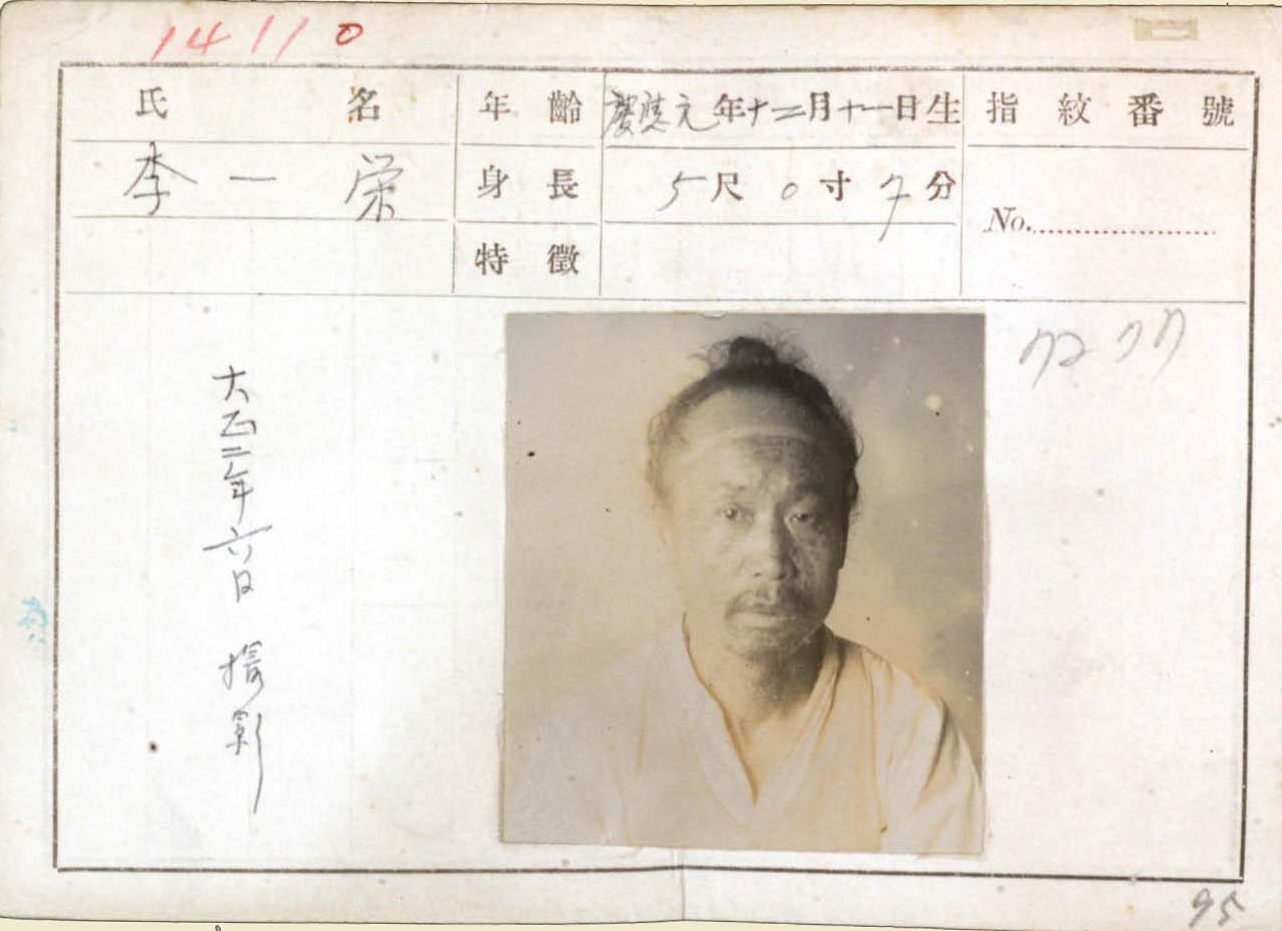 14110
氏名 年齡 慶應元年十二月十一日生 指紋番號
李一栄 身長 5尺0寸7分 No.
特徵
大正二年六日 撮影
95